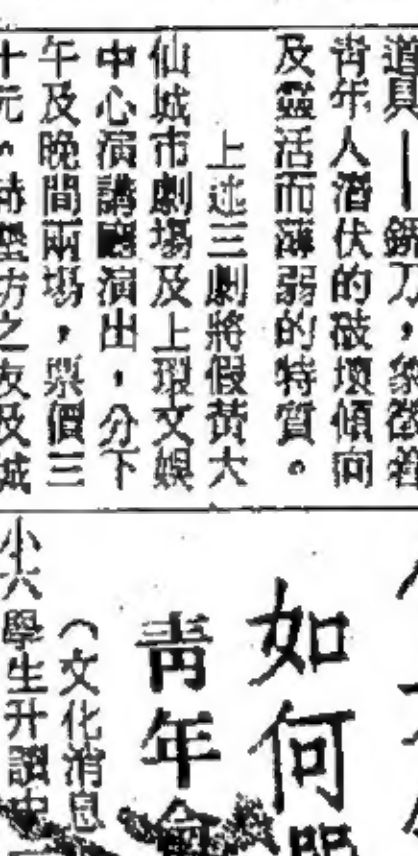 道具——鐮刀，象徵着
青年人潛伏的破壞傾向
及靈活而薄弱的特質。
上述三劇將假黃大
仙城市劇場及上環文娛
中心演講廳演出，分下
午及晚間兩場，票價三
十元。赫墾坊之友及城
如何
青年會
（文化消息
小六學生升讀中